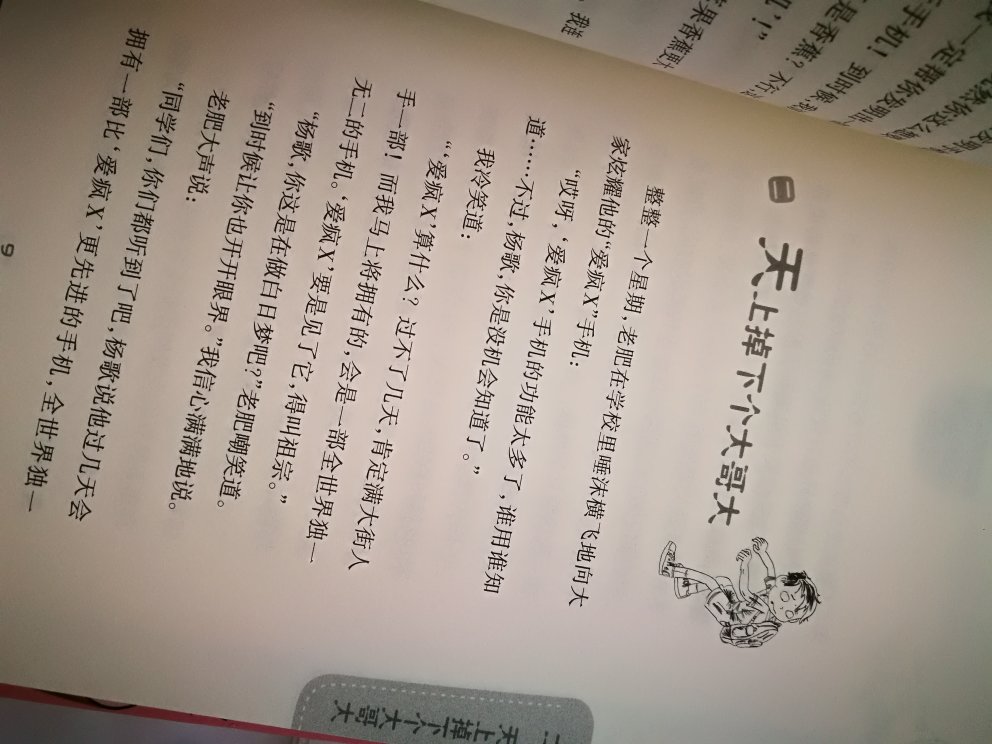 二
天上掉下个大哥大
整整一个星期，老肥在学校里唾沫横飞地向大
家炫耀他的“爱疯X”手机：
“哎呀，‘爱疯X’手机的功能太多了，谁用谁知
道……不过，杨歌，你是没机会知道了。”
我冷笑道：
“‘爱疯X’算什么？过不了几天，肯定满大街人
手一部！而我马上将拥有的，会是一部全世界独一
无二的手机。‘爱疯X’要是见了它，得叫祖宗。”
“杨歌，你这是在做白日梦吧？”老肥嘲笑道。
“到时候让你也开开眼界。”我信心满满地说。
老肥大声说：
“同学们，你们都听到了吧，杨歌说他过几天会
拥有一部比‘爱疯X’更先进的手机，全世界独一
9
二 天上掉下个大哥大